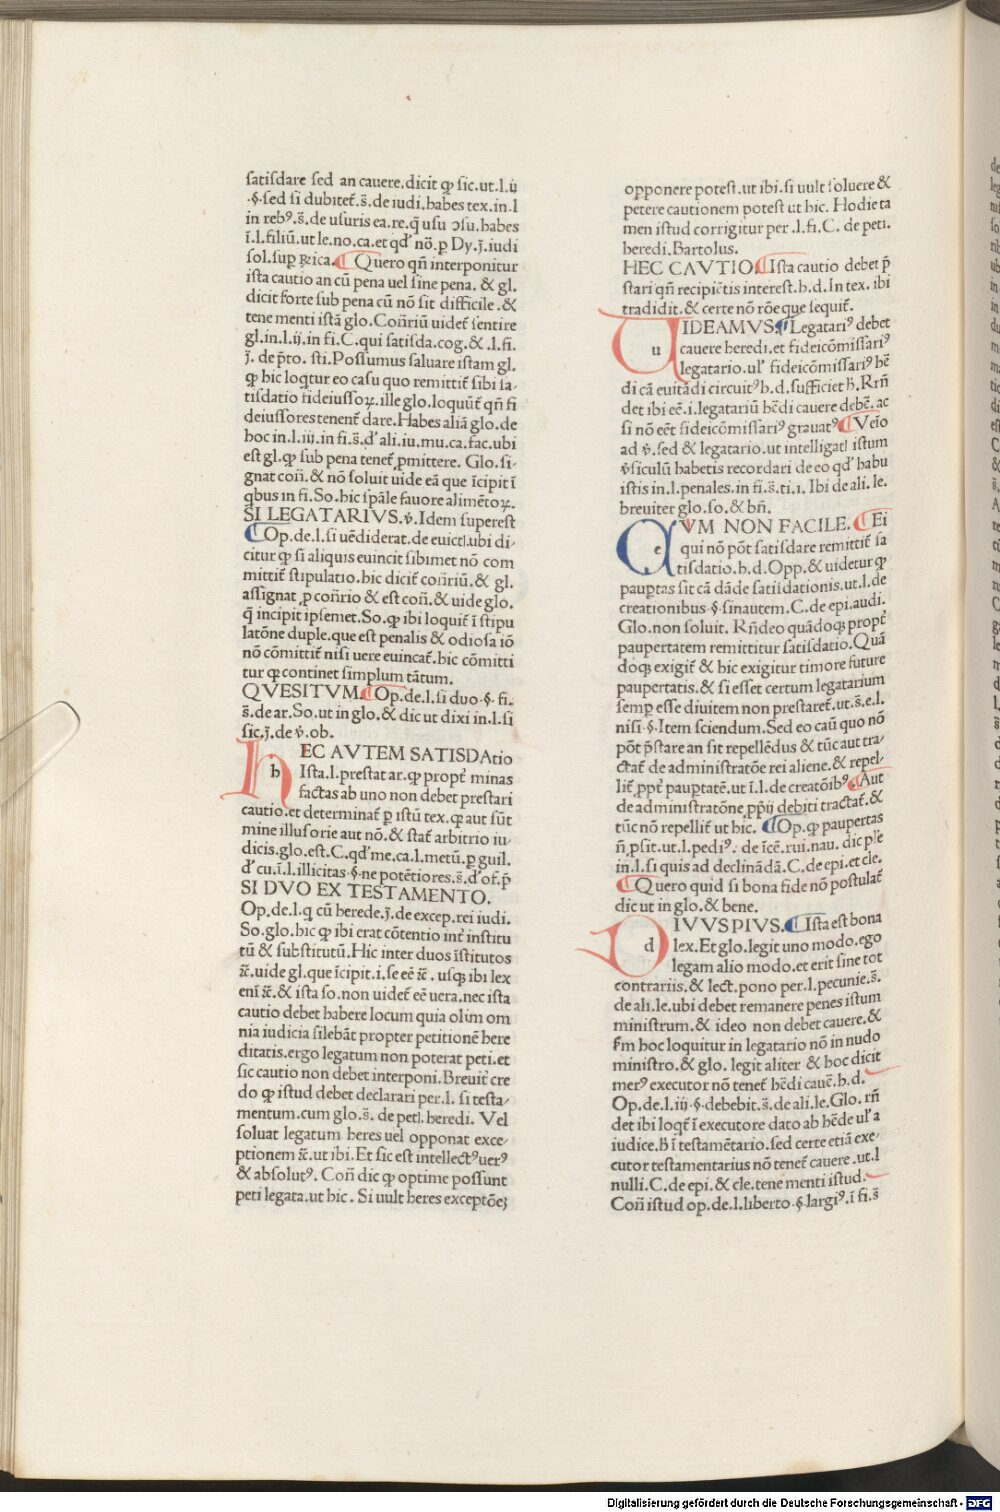 satisdare sed an cauere.dicit ꝙ sic.ut.l.ij
.§.sed si dubitet᷑.s̄.de iudi.habes tex.in.l
in reb⁹.s̄.de usuris ea.re.q̄ usu ↄsu.habes
ī.l.filiū.ut le.no.ca.et qd' nō.p Dy.j̄.iudi
sol.sup
Quero qn̄ interponitur
ista cautio an cū pena uel sine pena. & gl.
dicit forte sub pena cū nō sit difficile.&
tene menti istā glo.Con̄riū uidet᷑ sentire
gl.in.l.ij.in fi.C.qui satisda.cog.& .l.fi.
j̄. de p̄to. sti.Possumus saluare istam gl.
ꝙ hic loq̄tur eo casu quo remittit᷑ sibi sa-
tisdatio fideiussoꝝ.ille glo.loquūt᷑ qn̄ fi
deiussores tenent᷑ dare.Habes aliā glo.de
hoc in.l.iij.in fi.s̄.d' ali.iu.mu.ca.fac.ubi
est gl.ꝙ sub pena tenet᷑ ꝓmittere. Glo.si-
gnat con̄.& nō soluit uide eā que īcipit ī
qbus in fi.So.hic sp̄ale fauore alimētoꝝ.
SI LEGATARIVS.v̄.Idem superest
¶Op.de.l.si uēdiderat.de euict.ubi di-
citur ꝙ si aliquis euincit sibimet nō com
mittit᷑ stipulatio.hic dicit᷑ con̄riū.& gl.
assignat ꝓ con̄rio & est con̄.& uide glo.
q̄ incipit ipsemet.So.ꝙ ibi loquit᷑ ī stipu
latōne duple.que est penalis & odiosa iō
nō cōmittit᷑ nisi uere euincat᷑.hic cōmitti
tur ꝙ continet simplum tātum.
QVESITVM.¶Op.de.l.si duo.§. fi.
s̄.de ar.So.ut in glo.& dic ut dixi in.l.si
sic.j̄.de v̄.ob.
h EC AVTEM SATISDAtio
Ista.l.prestat ar.ꝙ propt᷑ minas
factas ab uno non debet prestari
cautio.et determinat᷑ p istū tex.ꝙ aut sūt
mine illusorie aut nō.& stat᷑ arbitrio iu-
dicis.glo.est.C.qd'me.ca.l.metū.p guil.
d' cu.ī.l.illicitas.§.ne potētiores.s̄.d'of.p̄
SI DVO EX TESTAMENTO.
Op.de.l.q cū herede.j̄.de excep.rei iudi.
So.glo.hic ꝙ ibi erat cōtentio int᷑ institu
tū & substitutū.Hic inter duos īstitutos
ꝛc̄.uide gl.que īcipit.i.se eē ꝛc̄ . usq; ibi lex
enī ꝛc̄.& ista so.non uidet᷑ eē uera.nec ista
cautio debet habere locum quia olim om
nia iudicia silebāt propter petitionē here
ditatis.ergo legatum non poterat peti.et
sic cautio non debet interponi.Breuit᷑ cre
do ꝙ istud debet declarari per.l. si testa-
mentum.cum glo.s̄. de peti. heredi. Vel
soluat legatum heres uel opponat exce-
ptionem ꝛc̄.ut ibi.Et sic est intellect⁹uer⁹
& absolut⁹. Con̄ dic ꝙ optime possunt
peti legata.ut hic. Si uult heres exceptōeȝ
opponere potest.ut ibi.si uult soluere &
petere cautionem potest ut hic. Hodie ta
men istud corrigitur per .l.fi.C. de peti.
heredi.Bartolus.
HEC CAVTIO.¶Ista cautio debet p̄
stari qn̄ recipiētis interest.h.d.In tex. ibi
tradidit.& certe nō rōe que sequit᷑.
u IDEAMVS.¶Legatari⁹ debet
cauere heredi.et fideicōmissari⁹
legatario.ul' fideicōmissari⁹ hē
di cā euitādi circuit⁹h.d.sufficiet h. Rn̄
det ibi eē.i.legatariū hēdi cauere debē. ac
si nō eēt fideicōmissari⁹ grauat⁹¶Veīo
ad v̄.sed & legatario.ut intelligat istum
v̄siculū habetis recordari de eo qd' habu
istis in.l.penales.in fi.s̄.ti.1. Ibi de ali. le.
breuiter glo.so.& bn̄.
c VM NON FACILE.¶Ei
qui nō pōt satisdare remittit᷑ sa
tisdatio.h.d.Opp.& uidetur ꝙ
paupertas sit cā dāde satisdationis.ut.l.de
creationibus.§.sinautem.C.de epi.audi.
Glo.non soluit. Rn̄deo quādoq; propt᷑
paupertatem remittitur satisdatio.Quā
doq; exigit᷑ & hic exigitur timore future
paupertatis.& si esset certum legatarium
semp esse diuitem non prestaret᷑.ut.s̄.e.l.
nisi.§.Item sciendum.Sed eo caū quo nō
pōt p̄stare an sit repellēdus & tūc aut tra-
ctat᷑ de administratōe rei aliene.& repel-
lit᷑ ꝓpt᷑ paupertatē.ut ī.l.de creatōib⁹.¶Aut
de administratōne ꝓpij debiti tractat᷑.&
tūc nō repellit᷑ ut hic. ¶Op.ꝙ paupertas
n̄ ꝓsit.ut.l.pedi⁹. de īcē.rui.nau. dic
in.l.si quis ad declinādā.C.de epi.et cle.
¶Quero quid si bona fide nō postulat᷑
dic ut in glo.& bene.
d IVVS PIVS.¶Ista est bona
lex.Et glo.legit uno modo.ego
legam alio modo.et erit sine tot
contrariis.& lect.pono per.l.pecunie.s̄.
de ali.le.ubi debet remanere penes istum
ministrum.& ideo non debet cauere.&
fm hoc loquitur in legatario nō in nudo
ministro.& glo. legit aliter & hoc dicit
mer⁹ executor nō tenet᷑ hēdi cauē.h.d.
Op.de.l.iij.§.debebit.s̄.de ali.le.Glo. rn̄
det ibi loqt᷑ ī executore dato ab hēde ul' a
iudice.h̄ ī testamētario.sed certe etiā exe-
cutor testamentarius nō tenet᷑ cauere.ut.l
nulli.C.de epi.& cle.tene menti istud.
Con̄ istud op.de.l.liberto.§.largi⁹.ī fi.s̄
Digitalisierung gefördert durch die Deutsche Forschungsgemeinschaft - DFG